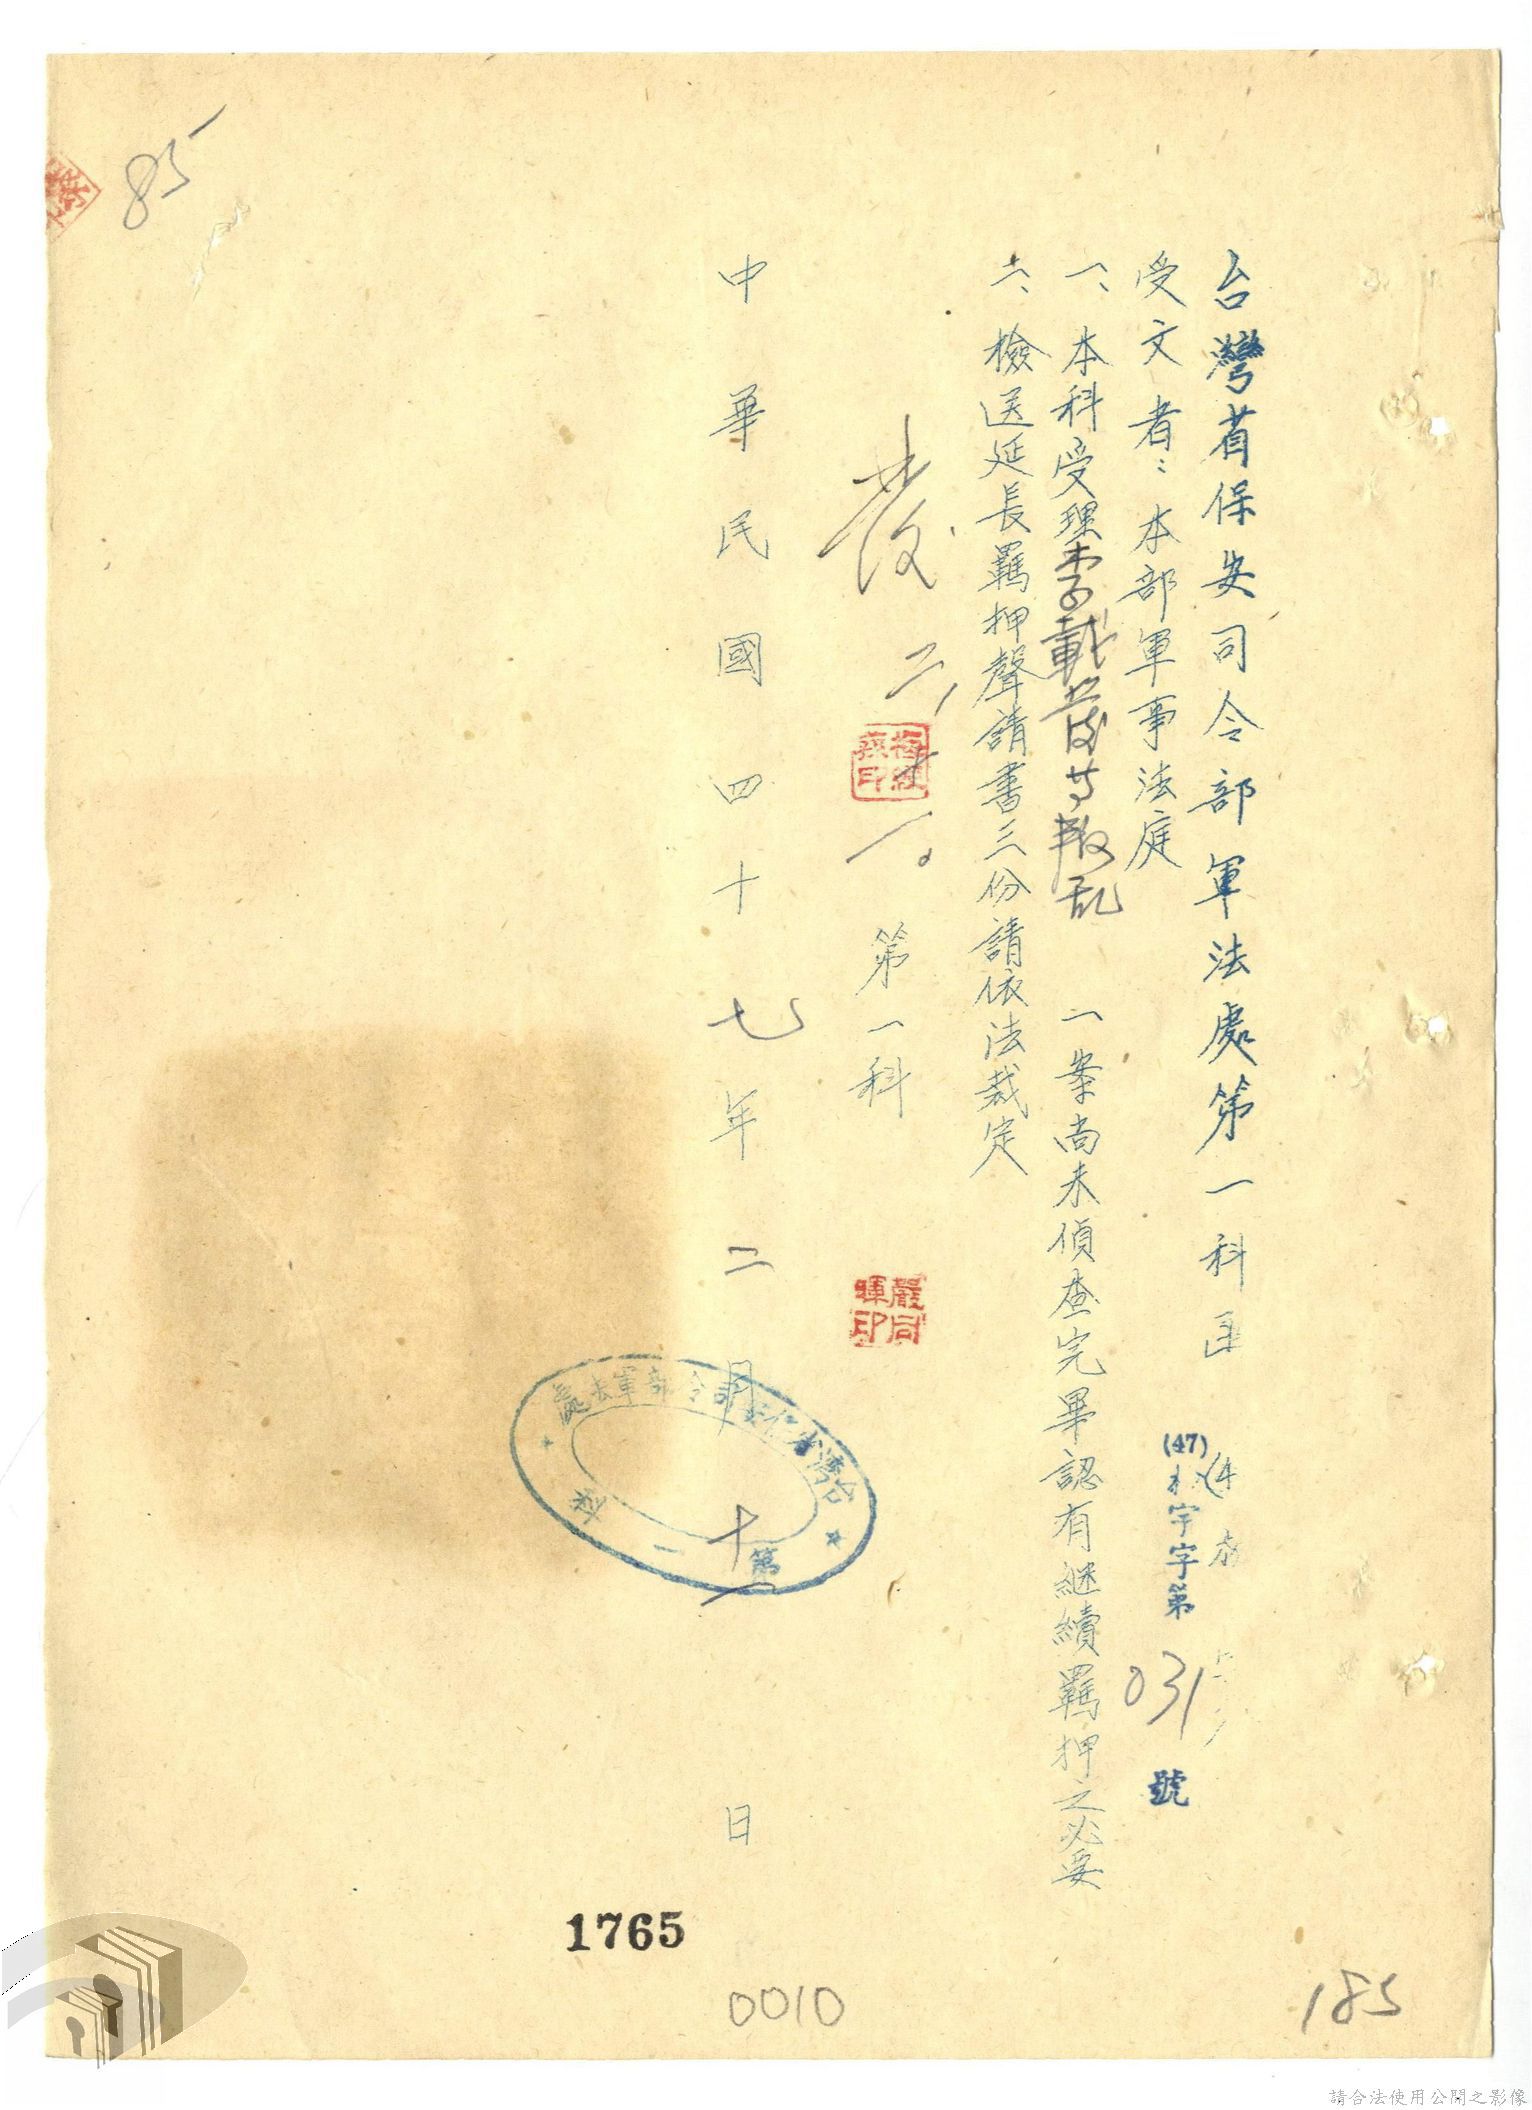 台灣省保安司令部軍法處第一科函
(47)
宇字第
031
號
受文者：本部軍事法庭
一、本科受理李載發等叛乱 一案尚未偵查完畢認有継續羈押之必要
二、檢送延長羈押聲請書三份請依法裁定
發 二、十一。
第一科
嚴同暉印
中華民國四十七年二月十一日
台灣省保安司令部軍法處
第一科
85
1765
0010
185
請合法使用公開之影像